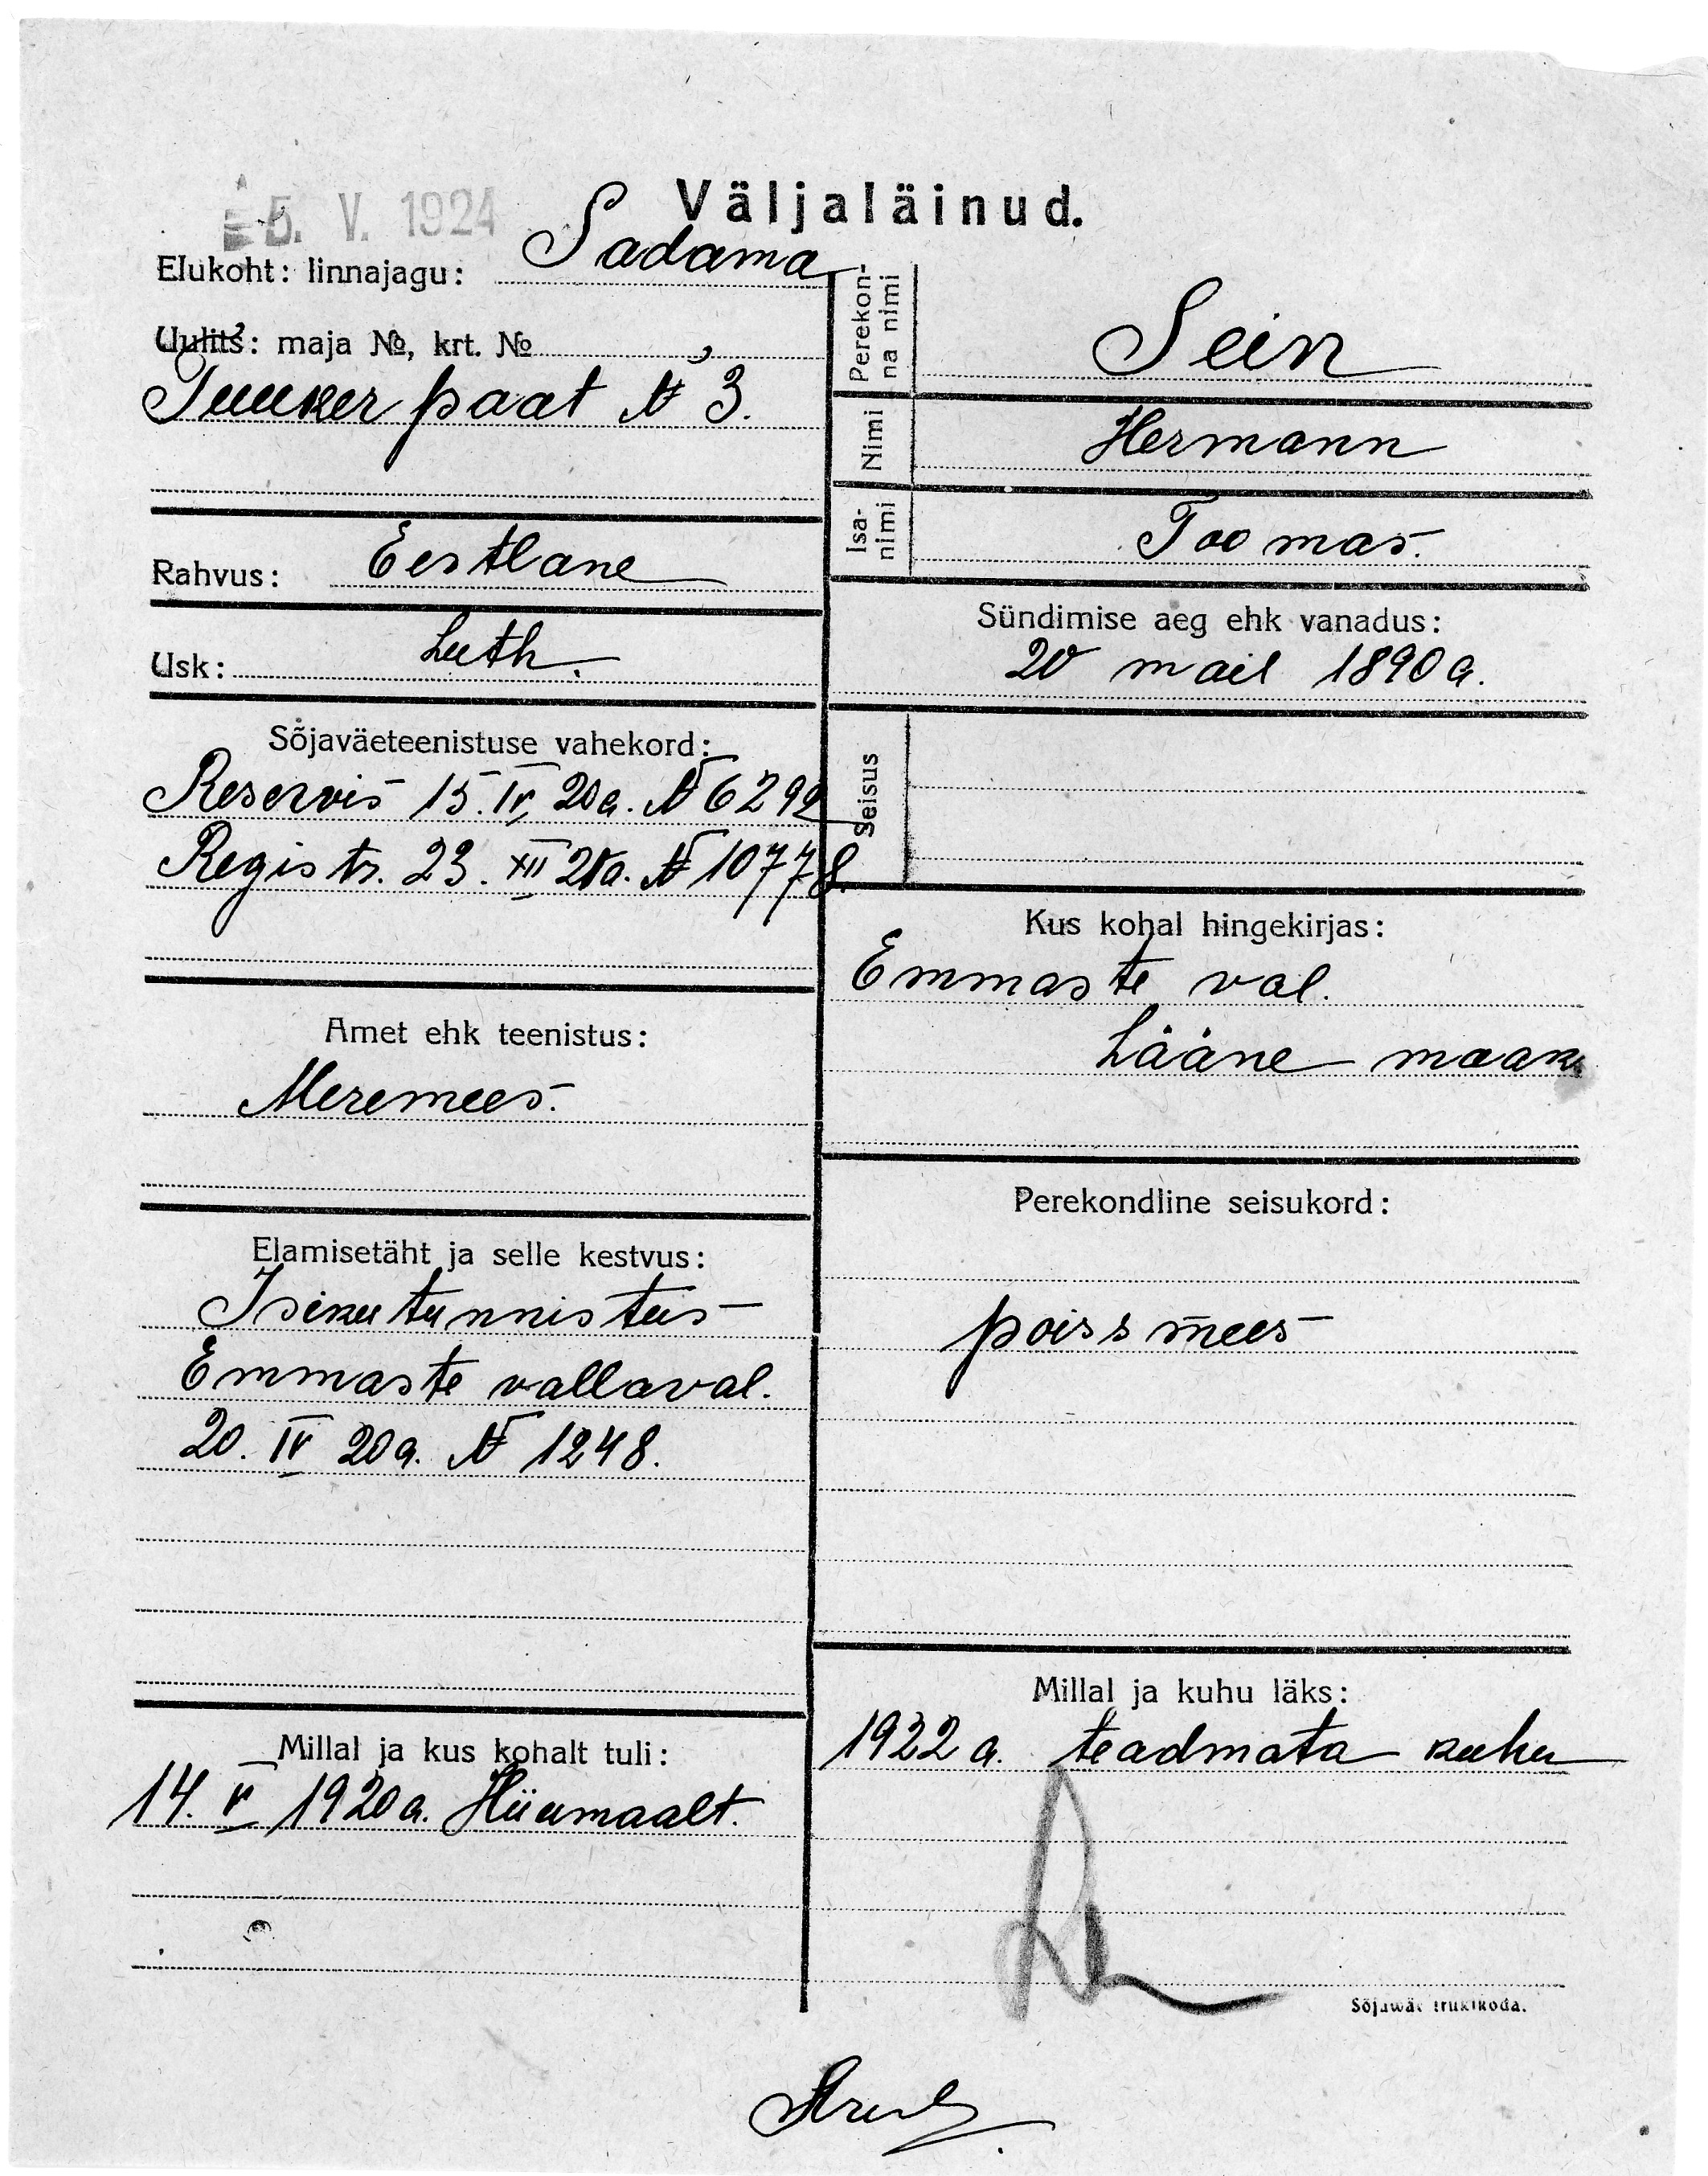 5. V. 1924
Väljaläinud.
Elukoht: linnajagu: Sadama
Uulits: maja №, krt. №
Tuuker paat № 3.
Rahvus: Eestlane
Usk: Luth.
Sõjaväeteenistuse vahekord:
Reservis 15. IV 20a. № 6292
Registr. 23. XII 21a. № 10778.
Amet ehk teenistus:
Meremees.
Elamisetäht ja selle kestvus:
Isikutunnistus
Emmaste vallaval.
20. IV 20a. № 1248.
Millal ja kus kohalt tuli:
14. V 1920a. Hiiumaalt.
Perekon-
na nimi
Sein
Nimi
Hermann
Isa-
nimi
Toomas.
Sündimise aeg ehk vanadus:
20 mail 1890a.
Seisus
Kus kohal hingekirjas:
Emmaste val.
Lääne maak.
Perekondline seisukord:
poissmees
Millal ja kuhu läks:
1922 a. teadmata kuhu
Sõjawäe trükikoda.